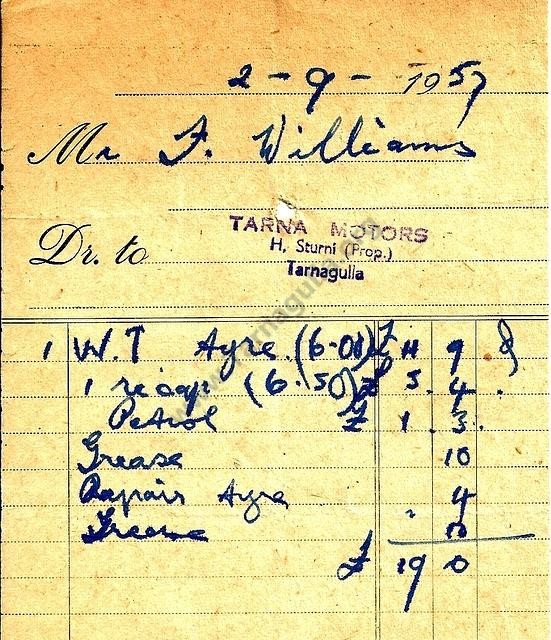 2 - 9 - 1957
Mr F. Williams
Dr. to
TARNA MOTORS
H. Sturni (Prop.)
Tarnagulla
1 W.T Ayre (6-00) £ 11 9
1 recap (6.50) £ 5. 4.
Petrol £ 1. 3.
Grease 10
Repair Ayre 4
Grease 10
£ 19 0